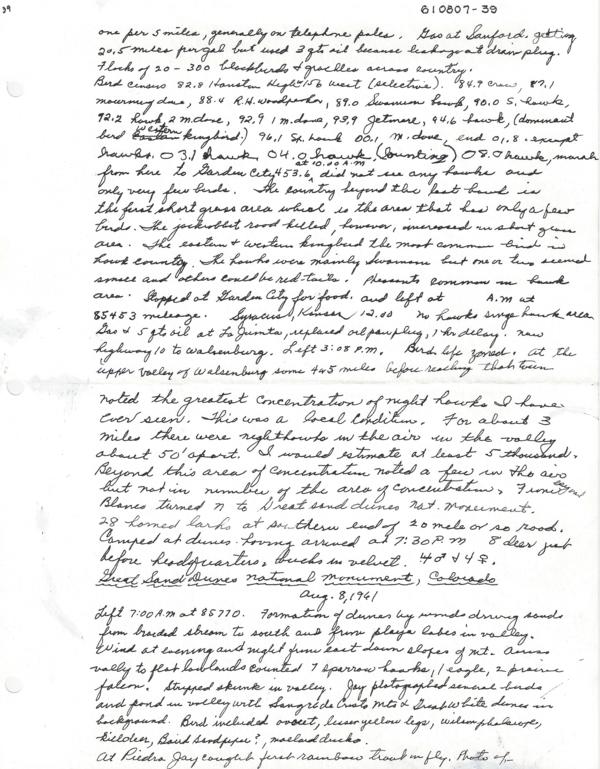 39
610807-39
one per 5 miles, generally on telephone poles. Gas at Sanford. getting
20.5 miles per gal but used 3 qts oil because leakage at drain plug.
Flocks of 20 - 300 blackbirds & grackles across country.
Bird census 82.8 Houston High 156 west (selective). 84.9 crow, 87.1
mourning dove, 88.4 R.H. woodpecker, 89.0 Swainson hawk, 90.0 S. hawk,
92.2 hawk, 2 m. dove, 92.9 1 m. dove, 93.9 Jetmore, 94.6 hawk, (dominant
bird Western kingbird.) 96.1 Sp. hawk 00.1 m. dove, end 01.8. except
hawks. 03.1 hawk 04.0 hawk. (Counting) 08.0 hawk, marsh
from here to Garden City 453.6, at 10.00 A.M did not see any hawks and
only very few birds. The country beyond the last hawk is
the first short grass area which is the area that has only a few
birds. The jackrabbit road killed, however, increased in short grass
area. The eastern & western kingbird the most common bird in
hawk country. The hawks were mainly Swainson but one or two seemed
small and others could be red-tails. Pheasants common in hawk
area. Stopped at Garden City for food. and left at A.M at
85453 mileage. Syracuse, Kansas 12.00 no hawks since hawk area
Gas & 5 qts oil at La Junta, replaced oil pan plug, 1 hr delay. new
highway 10 to Walsenburg. Left 3:08 P.M. Bird life zoned. At the
upper valley of Walsenburg some 4 or 5 miles before reaching that town
noted the greatest concentration of night hawks I have
ever seen. This was a local condition. For about 3
miles there were nighthawks in the air in the valley
about 50' apart. I would estimate at least 5 thousand.
Beyond this area of concentration noted a few in the air
but not in number of the area of concentration. From beyond
Blanca turned N to Great sand dunes Nat. Monument.
28 horned larks at southern end of 20 mile or so road.
Camped at dunes having arrived at 7:30 P.M 8 deer just
before headquarters, bucks in velvet. 4♂ & 4♀.
Great Sand Dunes National Monument, Colorado
Aug. 8, 1961
Left 7:00 A.M at 85770. Formation of dunes by winds driving sands
from braided stream to south and from playa lakes in valley.
Wind at evening and night from east down slopes of mt. Across
valley to flat lowlands counted 7 sparrow hawks, 1 eagle, 2 prairie
falcon. Stripped skunk in valley. Jay photographed several birds
and pond in valley with Sangre de Cristo Mts & Great White dunes in
background. Bird included avocet, lesser yellow legs, wilson phalarope,
killdeer, Baird Sandpiper?, mallard ducks.
At Piedra Jay caught first rainbow trout on fly. Photo of